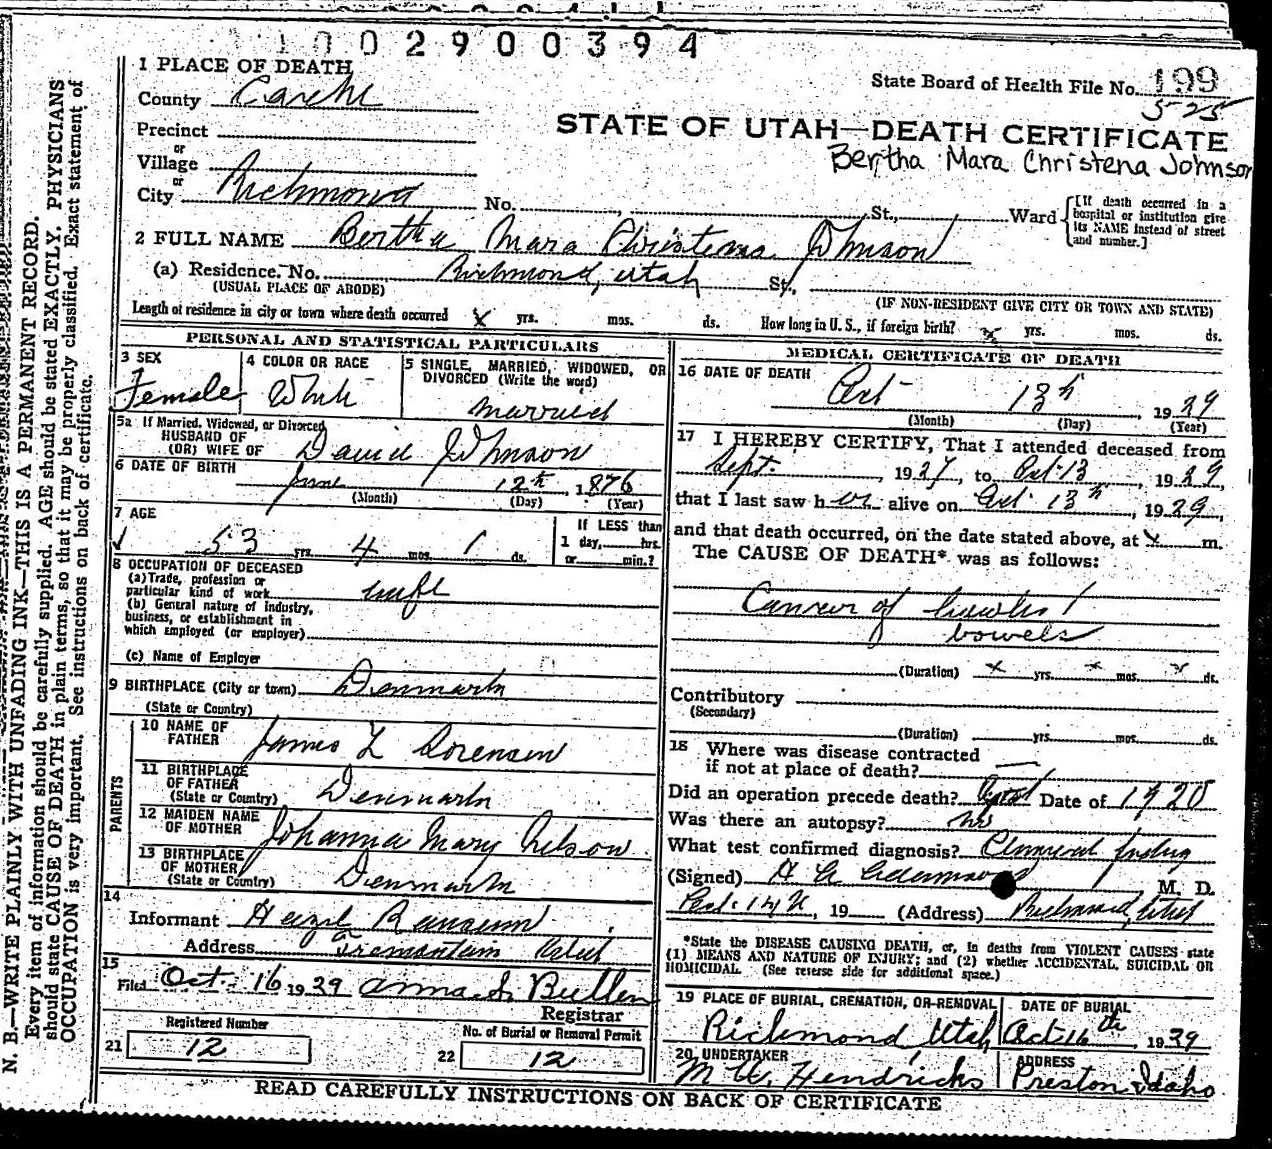 1002900394
1 PLACE OF DEATH
State Board of Health File No. 199
5-25
County Cache
STATE OF UTAH—DEATH CERTIFICATE
Bertha Mara Christena Johnson
Precinct
or
Village
or
City Richmond No. St., Ward
[If death occurred in a hospital or institution give its NAME instead of street and number.]
2 FULL NAME Bertha Mara Christena Johnson
(a) Residence. No. Richmond, Utah St.,
(USUAL PLACE OF ABODE) (IF NON-RESIDENT GIVE CITY OR TOWN AND STATE)
Length of residence in city or town where death occurred x yrs. mos. ds. How long in U. S., if foreign birth? x yrs. mos. ds.
PERSONAL AND STATISTICAL PARTICULARS
3 SEX
Female
4 COLOR OR RACE
White
5 SINGLE, MARRIED, WIDOWED, OR
DIVORCED (Write the word)
married
5a If Married, Widowed, or Divorced
HUSBAND OF
(OR) WIFE OF David Johnson
6 DATE OF BIRTH
June 12th, 1876
(Month) (Day) (Year)
7 AGE
53 yrs. 4 mos. 1 ds.
If LESS than
1 day, hrs.
or min.?
8 OCCUPATION OF DECEASED
(a) Trade, profession or
particular kind of work wife
(b) General nature of industry,
business, or establishment in
which employed (or employer)
(c) Name of Employer
9 BIRTHPLACE (City or town) Denmark
(State or Country)
PARENTS
10 NAME OF
FATHER James L Sorensen
11 BIRTHPLACE
OF FATHER
(State or Country) Denmark
12 MAIDEN NAME
OF MOTHER Johanna Mary Nelson
13 BIRTHPLACE
OF MOTHER
(State or Country) Denmark
14
Informant Hazel
Address Utah
15
Filed Oct. 16 1929 Anna S. Bullen
Registrar
Registered Number
21 12
No. of Burial or Removal Permit
22 12
MEDICAL CERTIFICATE OF DEATH
16 DATE OF DEATH
Oct 13th, 1929
(Month) (Day) (Year)
17 I HEREBY CERTIFY, That I attended deceased from
Sept. , 1927, to Oct. 13, 1929,
that I last saw her alive on Oct. 13th, 1929,
and that death occurred, on the date stated above, at x m.
The CAUSE OF DEATH* was as follows:
Cancer of bowels!
bowels
(Duration) x yrs. x mos. x ds.
Contributory
(Secondary)
(Duration) yrs. mos. ds.
18 Where was disease contracted
if not at place of death?
Did an operation precede death? Date of
Was there an autopsy? no
What test confirmed diagnosis? Clinical finding
(Signed) M. D.
Oct. 14th, 19 (Address) Richmond, Utah
*State the DISEASE CAUSING DEATH, or, in deaths from VIOLENT CAUSES state
(1) MEANS AND NATURE OF INJURY; and (2) whether ACCIDENTAL, SUICIDAL OR
HOMICIDAL. (See reverse side for additional space.)
19 PLACE OF BURIAL, CREMATION, OR REMOVAL
Richmond, Utah
DATE OF BURIAL
Oct 16th, 1929
20 UNDERTAKER
M W. Hendricks
ADDRESS
Preston Idaho
READ CAREFULLY INSTRUCTIONS ON BACK OF CERTIFICATE
N. B.—WRITE PLAINLY WITH UNFADING INK—THIS IS A PERMANENT RECORD.
Every item of information should be carefully supplied. AGE should be stated EXACTLY. PHYSICIANS
should state CAUSE OF DEATH in plain terms, so that it may be properly classified. Exact statement of
OCCUPATION is very important. See instructions on back of certificate.